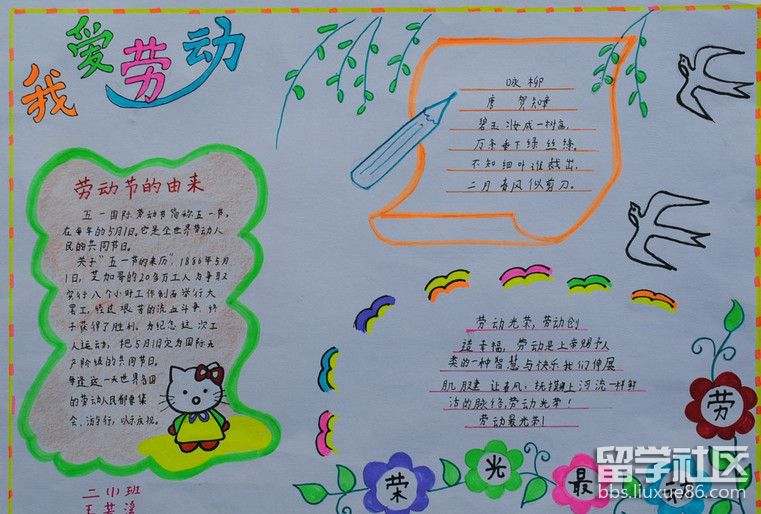 我爱劳动
劳动节的由来
五一国际劳动节简称五一节，
在每年的5月1日。它是全世界劳动人
民的共同节日。
关于"五一节的来历"，1886年5月
1日，芝加哥的20多万工人为争取
实行八个小时工作制而举行大
罢工，经过艰苦的流血斗争，终
于获得了胜利。为纪念这次工
人运动，把5月1日定为国际无
产阶级的共同节日。
每逢这一天世界各国
的劳动人民都要集
会、游行，以示庆祝。
二小班
咏柳
唐 贺知章
碧玉妆成一树高，
万条垂下绿丝绦。
不知细叶谁裁出，
二月春风似剪刀。
劳动光荣，劳动创
造幸福，劳动是上帝赐予人
类的一种智慧与快乐我们伸展
肌腱 让春风，抚摸上河流一样鲜
活的脉络，劳动光荣！
劳动最光荣！
劳
荣 光 最
留学社区
bbs.liuxue86.com